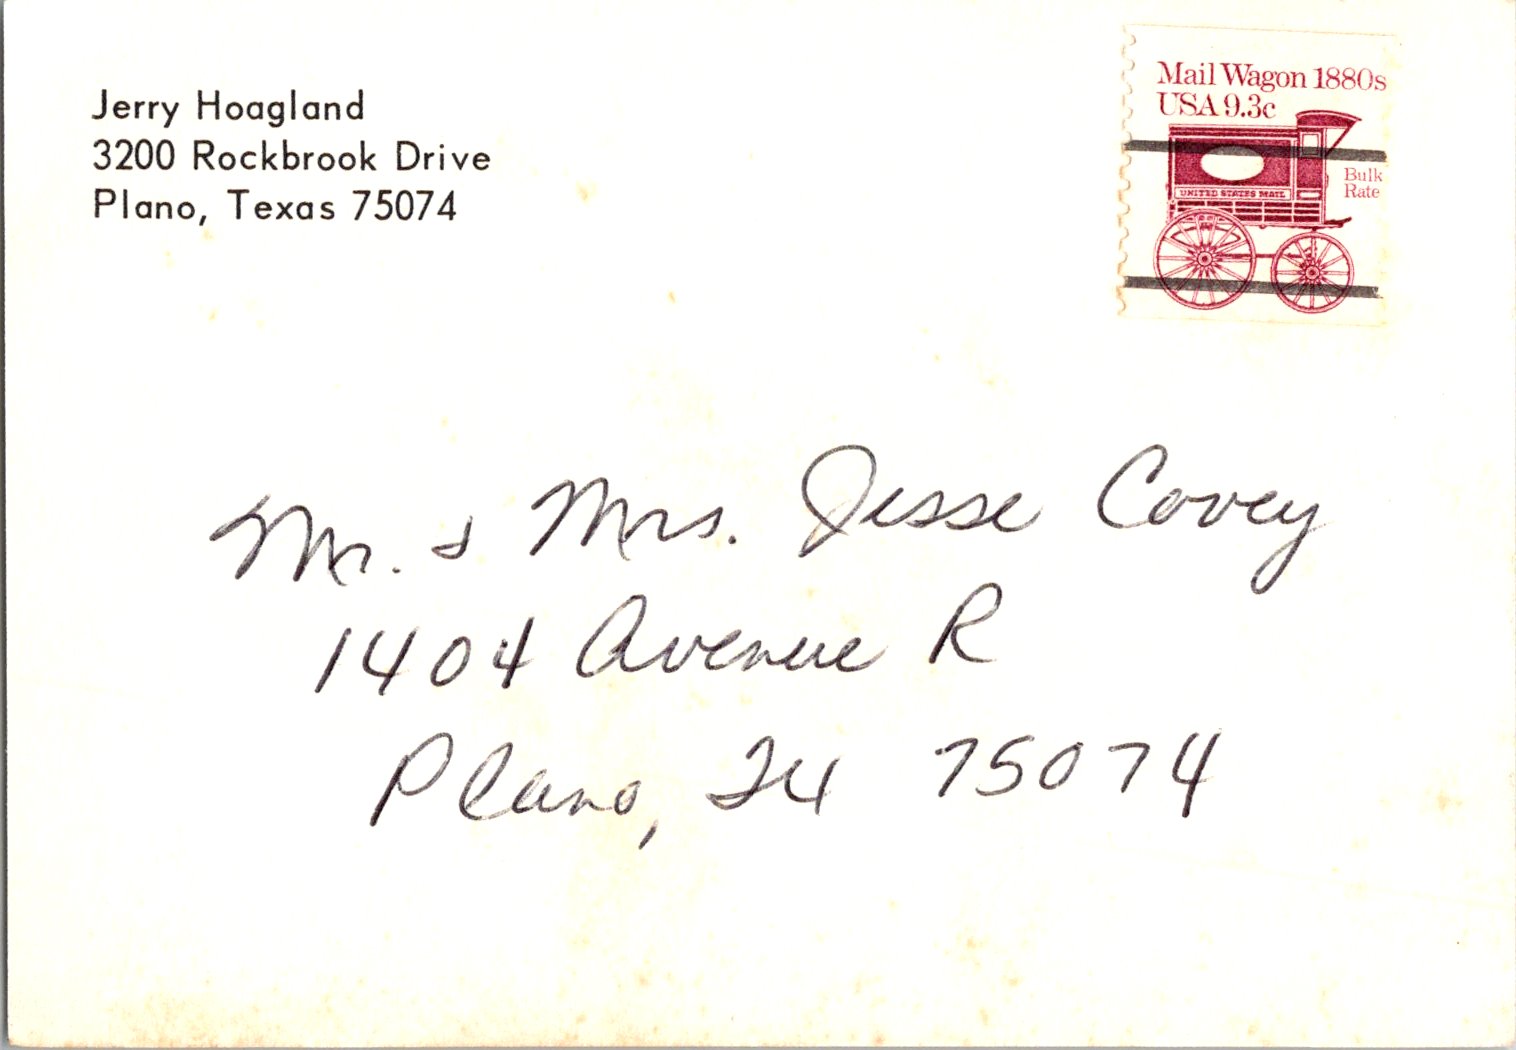 Jerry Hoagland
3200 Rockbrook Drive
Plano, Texas 75074
Mail Wagon 1880s
USA 9.3c
Bulk
Rate
UNITED STATES MAIL
Mr. & Mrs. Jesse Covey
1404 Avenue R
Plano, TX 75074